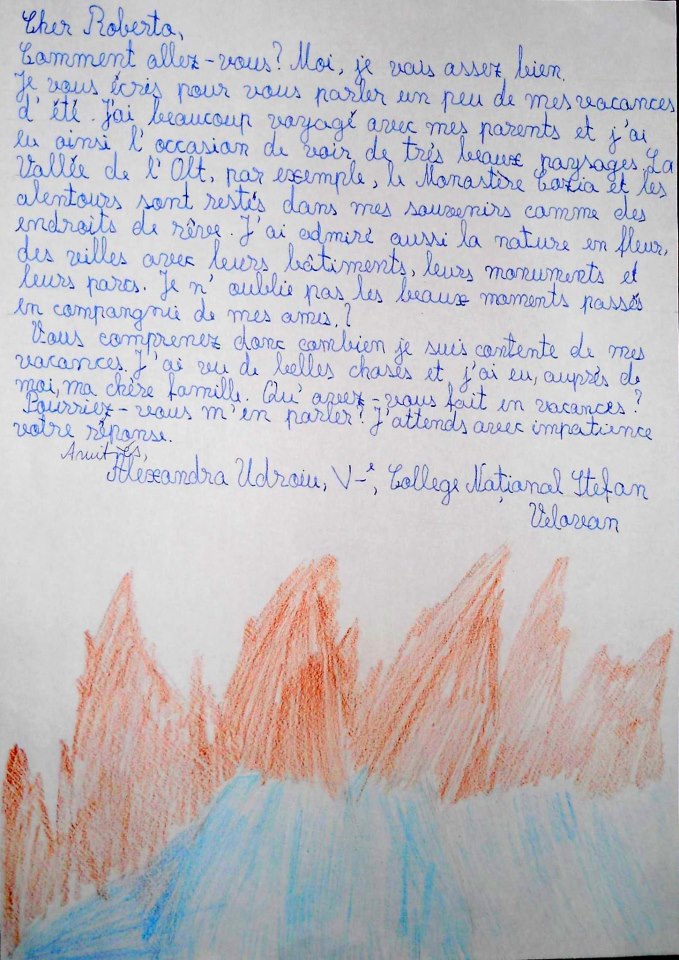 Cher Roberto,
Comment allez-vous? Moi, je vais assez bien.
Je vous écris pour vous parler un peu de mes vacances
d'été. J'ai beaucoup voyagé avec mes parents et j'ai
eu ainsi l'occasion de voir de très beaux paysages. La
Vallée de l'Olt, par exemple, le Monastère Cozia et les
alentours sont restés dans mes souvenirs comme des
endroits de rêve. J'ai admiré aussi la nature en fleur,
des villes avec leurs bâtiments, leurs monuments et
leurs parcs. Je n'oublie pas les beaux moments passés
en compangnie de mes amis.?
Vous comprenez donc combien je suis contente de mes
vacances. J'ai vu de belles choses et j'ai eu, auprés de
moi, ma chère famille. Qu'avez-vous fait en vacances?
Pourriez-vous m'en parler? J'attends avec impatience
votre réponse.
Amitiés,
Alexandra Udroiu, V-e, College Național Stefan
Velovan